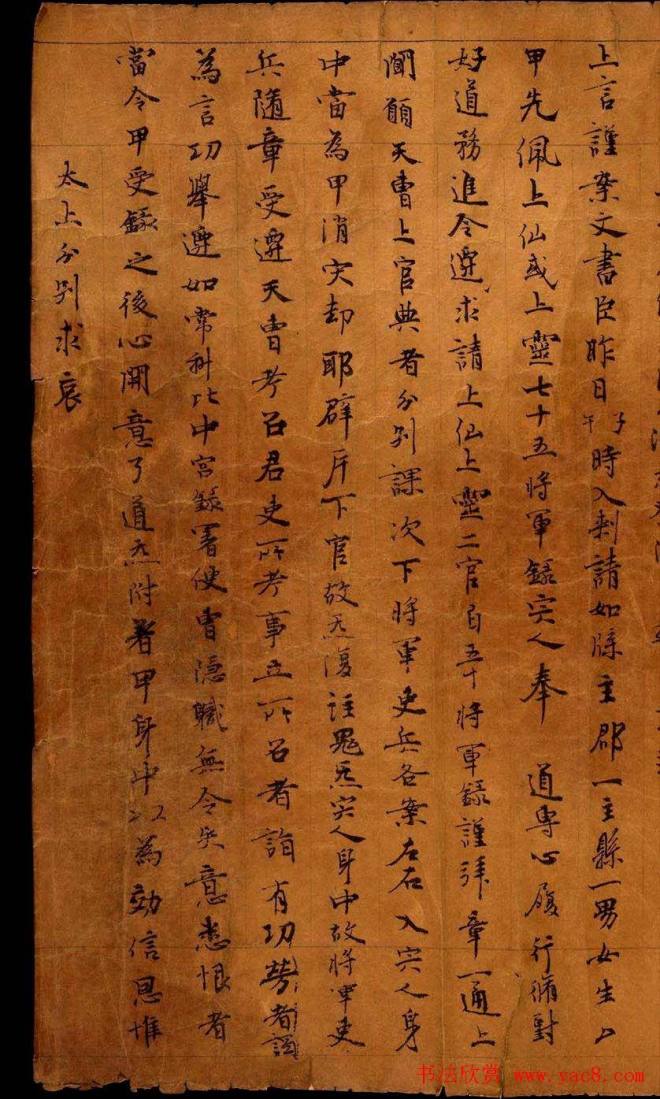 上言謹案文書臣昨日子午時入刺請如牒主郡一主縣一男女生
甲先佩上仙或上靈七十五將軍籙突人奉　道專心履行脩對
好道務進今遷求請上仙上靈二官百五十將軍籙謹拜章一通上
聞願天曹上官典者分別課次下將軍吏兵各案左右入突人身
中當為甲消灾却耶辟斥下官故炁復註鬼炁突人身中故將軍吏
兵隨章受遷天曹考召君吏所考事立所召者詣有功勞者詣
為言功舉遷如常科比中宮錄署使曹隱職無令失意恚恨者
當令甲受籙之後心開意了道炁附著甲身中以為効信恩惟
太上分別求哀
书法欣赏 www.yac8.com